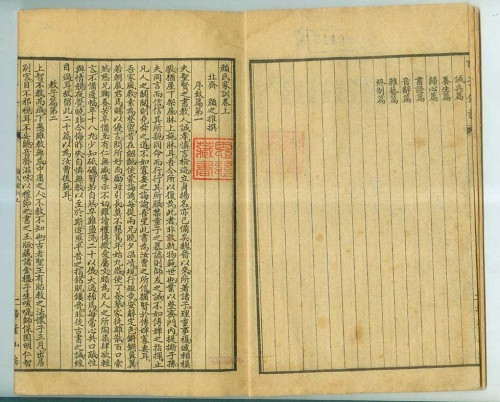 誡兵篇
養生篇
歸心篇
書證篇
音辭篇
雜藝篇
終制篇
顏氏家訓卷上
北齊 顏之推撰
序致篇第一
夫聖賢之書教人誠孝慎言檢迹立身揚名亦已備矣魏晉以來所著諸子理重事複遞相模
斅猶屋下架屋牀上施牀耳吾今所以復為此者非敢軌物範世也業以整齊門內提撕子孫
夫同言而信信其所親同命而行行其所服禁童子之暴謔則師友之誡不如傅婢之指揮止
凡人之鬬鬩則堯舜之道不如寡妻之誨諭吾望此書為汝曹之所信猶賢於傅婢寡妻耳
吾家風教素為整密昔在齠齔便蒙誨誘每從兩兄曉夕溫凊規行矩步安辭定色鏘鏘翼翼
若朝嚴君焉賜以優言問所好尚勵短引長莫不懇篤年始九歲便丁荼蓼家塗離散百口索
然慈兄鞠養苦辛備至有仁無威導示不切雖讀禮傳微愛屬文頗為凡人之所陶染肆欲輕
言不備邊幅年十八九少知砥礪習若自然卒難洗盪二十以後大過稀焉每常心共口敵性
與情競夜覺曉非今悔昨失自憐無教以至於斯追思平昔之指銘肌鏤骨非徒古書之誡經
目過耳故留此二十篇以為汝曹後範耳
教子篇第二
上智不教而成下愚雖教無益中庸之人不教不知也古者聖王有胎教之法懷子三月出居
別宮目不邪視耳不妄聽音聲滋味以禮節之書之玉版藏諸金櫃子生咳㖷師保固明仁智